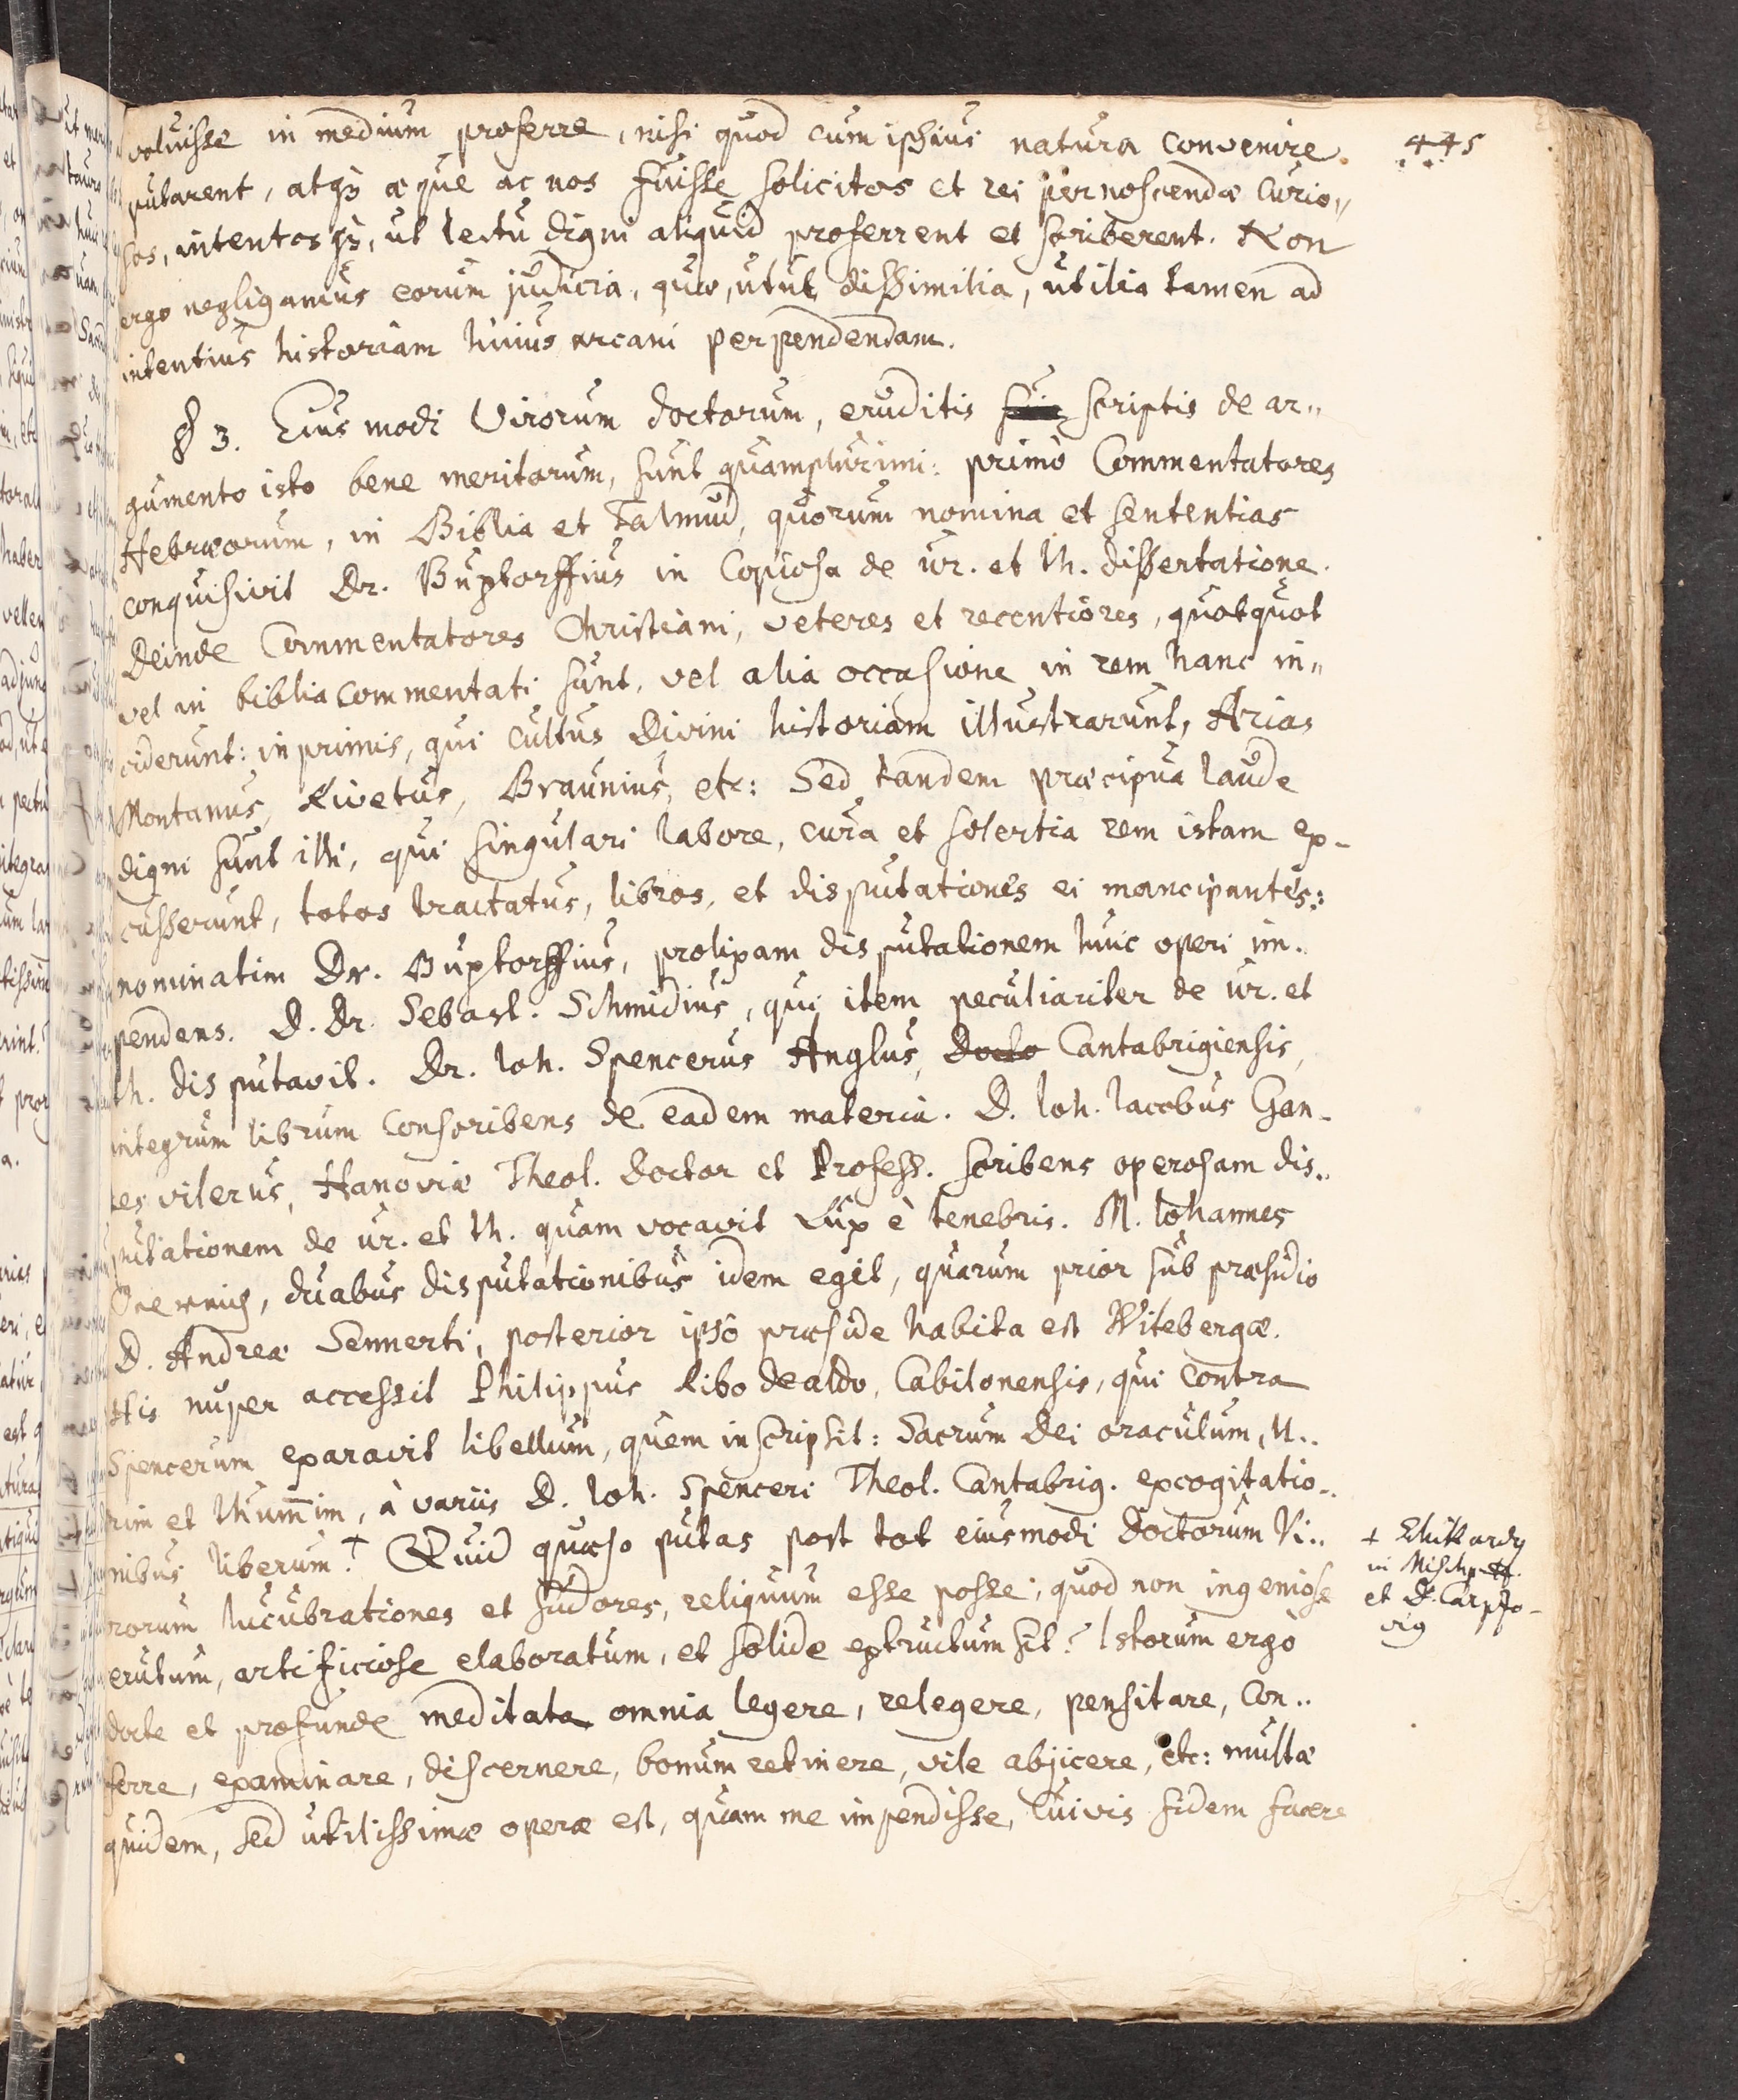 445
voluisse in medium proferre, nisi quod cum ipsius natura convenire
putarent, atq3 æque ac nos fuisse solicitos et rei pernoscendæ curio„
sos, intentosq3, ut lectu digni aliquid proferrent et scriberent. Non
ergo negligamus eorum judicia, quæ, utut dissimilia, utilia tamen ad
intentius historiam huius arcani perpendendam.
§ 3. Eius modi Virorum doctorum, eruditis suis scriptis de ar„
gumento isto bene meritorum, sunt quamplurimi: primò Commentatores
Hebræorum, in Biblia et Talmud, quorum nomina et sententias
conquisivit Dr. Buxtorffius in Copiosa de ur. et th. dissertatione.
Deinde Commentatores Christiani, veteres et recentiores, quotquot
vel in biblia commentati sunt, vel alia occasione in rem hanc in„
ciderunt: in primis, qui cultus Divini historiam illustrarunt, Arias
Montanus, Rivetus, Braunius, etc: Sed tandem præcipua laude
digni sunt illi, qui singulari labore, cura et solertia rem istam ex-
cusserunt, totos tractatus, libros, et disputationes ei mancipantes:
nominatim Dr. Buxtorffius, prolixam disputationem huic operi im..
pendens. D. Dr. Sebast. Schmidius, qui item peculiariter de ur. et
th. disputavit. Dr. Ioh. Spencerus Anglus, Docto Cantabrigiensis,
integrum librum conscribens de eadem materia. D. Ioh. Iacobus Gan-
tesvilerus, Hanoviæ Theol. Doctor et Profess. scribens operosam dis..
putationem de ur. et th. quam vocavit Lux è tenebris. M. Iohannes
duabus disputationibus idem egit, quarum prior sub præsidio
D. Andreæ Sennerti, posterior ipso præside habita est Witebergæ.
His nuper accessit Philippus Ribo dealdo, Cabilonensis, qui contra
Spencerum exaravit libellum, quem inscripsit: Sacrum Dei oraculum, U..
rim et Thum̅im, à variis D. Ioh. Spenceri Theol. Cantabrig. excogitatio..
nibus liberum.† Quid quæso putas post tot eiusmodi Doctorum Vi..
rorum lucubrationes et sudores, reliquum esse posse, quod non ingeniose
erutum, artificiose elaboratum, et solide extructum sit? Istorum ergò
docte et profunde meditata omnia legere, relegere, pensitare, con..
ferre, examinare, discernere, bonum retinere, vile abjicere, etc: multæ
quidem, sed utilissimæ operæ est, quam me impendisse, cuivis fidem facere
+ Schikardg
in Mischp.
et D. Carpzo-
vig